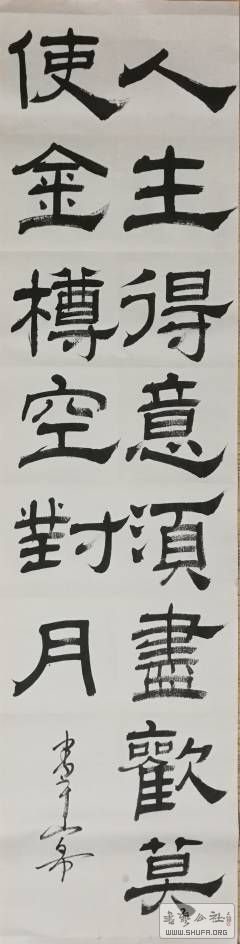 人生得意湏盡歡莫
使金樽空對月
WWW.SHUFA.ORG